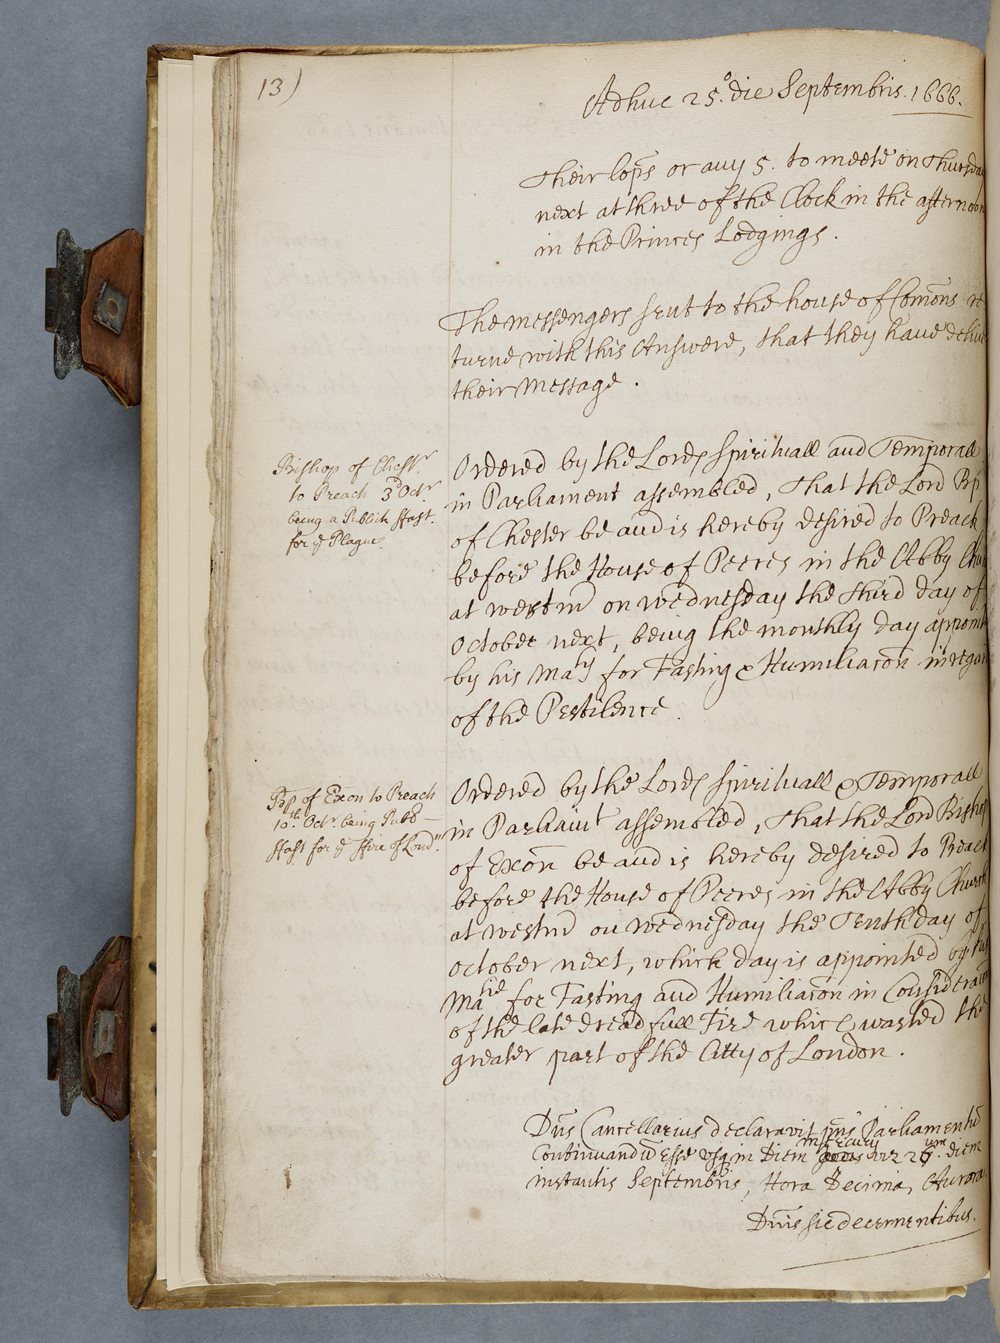 13)
Adhuc 25.º die Septembris. 1666.
Their lopps or any 5. to meete on Thursday
next at three of the Clock in the afternoon
in the Princes Lodgings.
The messengers sent to the house of Comõns re
turne with this Answere, that they have deliv
their Message.
Bishop of Chestr
to Preach 3d Octr
being a Publick ffast.
for ye Plague.
Ordered by the Lords Spirituall and Temporall
in Parliament assembled, That the Lord Bp̃
of Chester be and is hereby desired to Preach
before the House of Peeres in the Abby Chur
at westmr on wednesday the third day of
October next, being the monthly day appoint
by his Maty for Fasting & Humiliacõn in regar
of the Pestilence.
Bp of Exon to Preach
10th Octr. being Publ—
ffast for ye ffire of Londn
Ordered by the Lords Spirituall & Temporall
in Parliamt assembled, That the Lord Bishop
of Exõn be and is hereby desired to Preach
before the House of Peeres in the Abby Church
at westmr on wednesday the Tenth day of
October next, which day is appointed by his
Matie for Fasting and Humiliacõn in Consideracõn
of the late dreadfull Fire which wasted the
greater part of the Citty of London.
Dñs Cancellarius declaravit p̃ns Parliamentũ
Continuandũ esse usq in diem Mercurij viz 26um. diem
instantis Septembris, Hora Decima, Aurora
Dñis sic decernentibus.